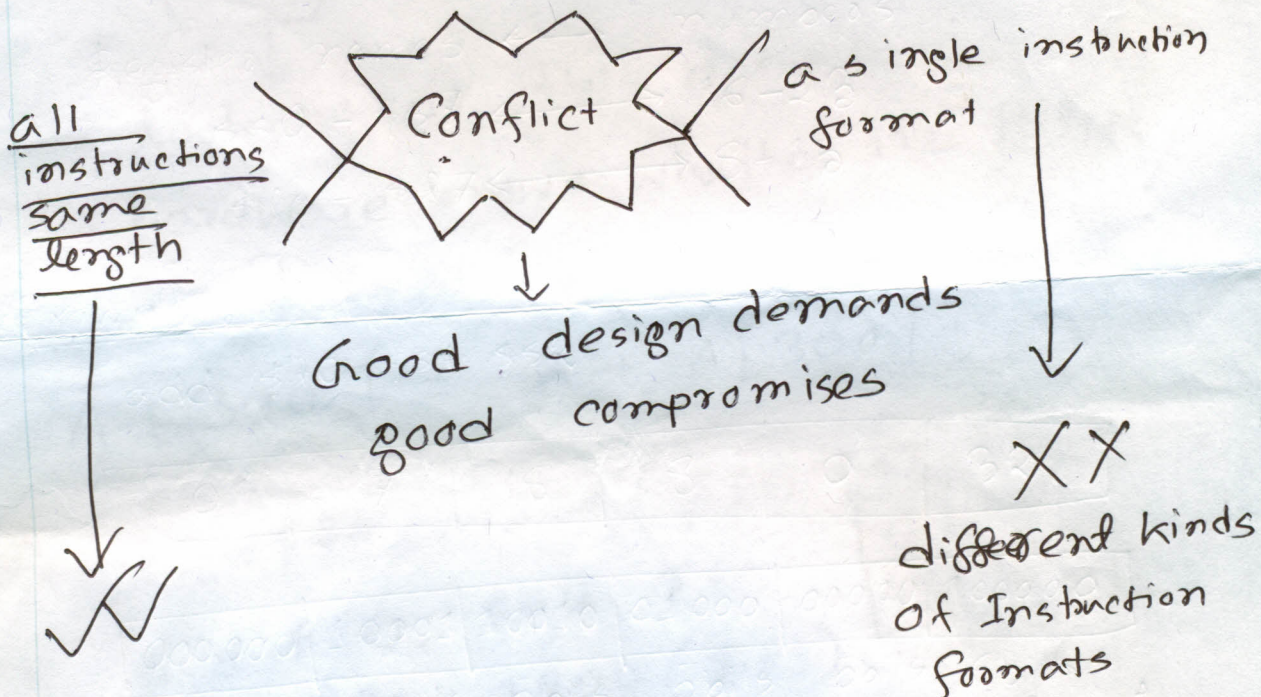 all
instructions
same
length
Conflict
a single instruction
format
Good design demands
good compromises
XX
different kinds
of Instruction
formats